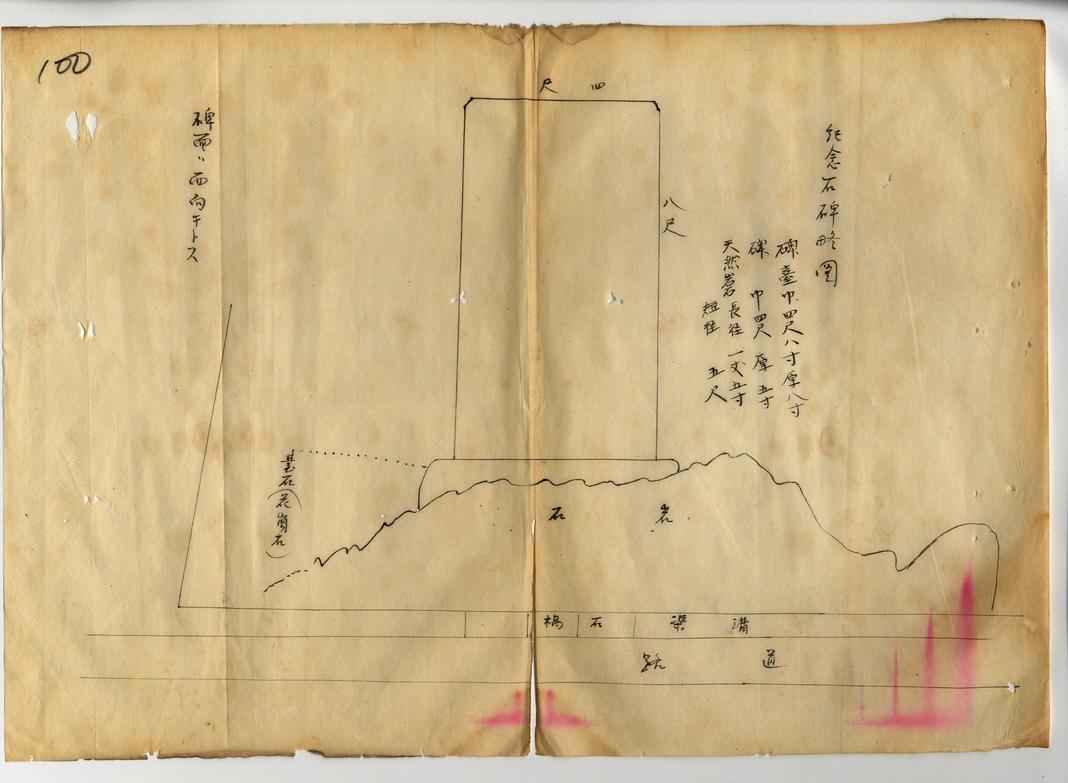 100
紀念石碑略圖
碑臺巾四尺八寸厚八寸
碑 巾四尺 厚五寸
天然岩 長徑 一丈五寸
短徑 五尺
四尺
八尺
碑面ハ西向キトス
基石(花崗石)
岩石
溝渠
石橋
道路